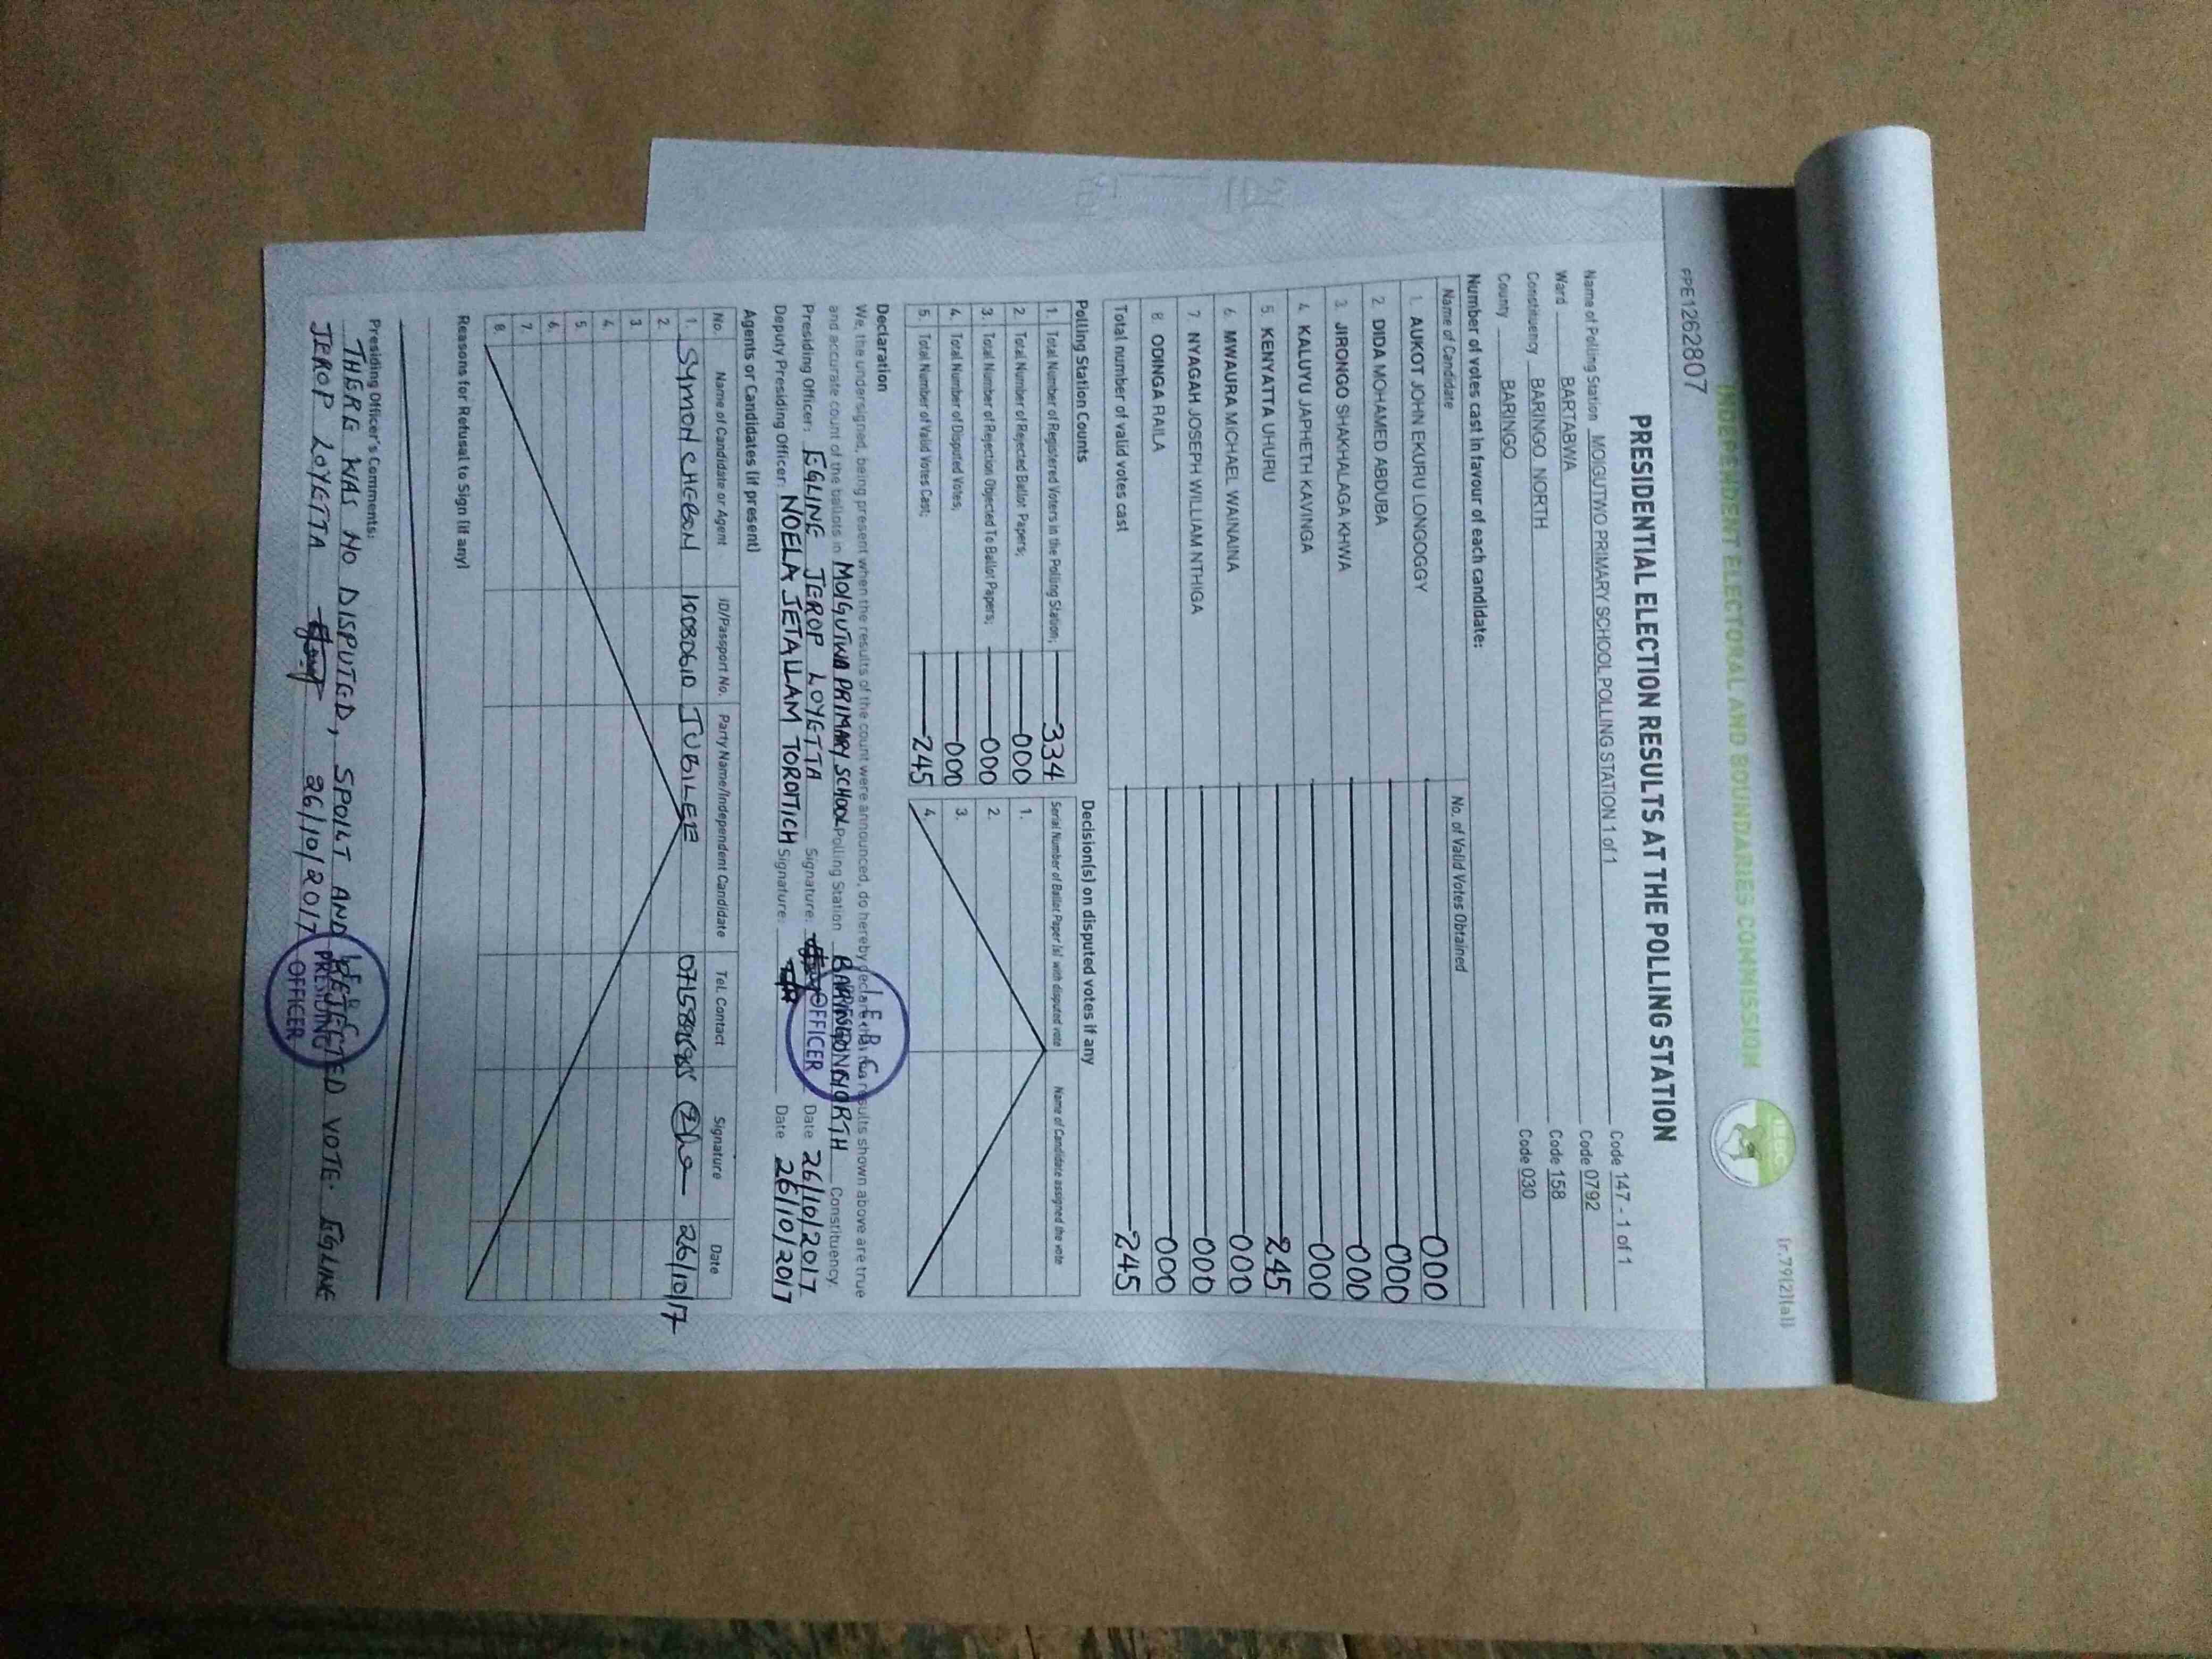 INDEPENDENT ELECTORAL AND BOUNDARIES COMMISSION
IEBC
(r.79(2)(a))
PPE1262807
PRESIDENTIAL ELECTION RESULTS AT THE POLLING STATION
Name of Polling Station MOIGUTWO PRIMARY SCHOOL POLLING STATION 1 of 1 Code 147 - 1 of 1
Ward BARTABWA Code 0792
Constituency BARINGO NORTH Code 158
County BARINGO Code 030
Number of votes cast in favour of each candidate:
Name of Candidate No. of Valid Votes Obtained
1. AUKOT JOHN EKURU LONGOGGY 000
2. DIDA MOHAMED ABDUBA 000
3. JIRONGO SHAKHALAGA KHWA 000
4. KALUYU JAPHETH KAVINGA 000
5. KENYATTA UHURU 245
6. MWAURA MICHAEL WAINAINA 000
7. NYAGAH JOSEPH WILLIAM NTHIGA 000
8. ODINGA RAILA 000
Total number of valid votes cast 245
Polling Station Counts Decision(s) on disputed votes if any
1. Total Number of Registered Voters in the Polling Station; 334 Serial Number of Ballot Paper (s) with disputed vote Name of Candidate assigned the vote
2. Total Number of Rejected Ballot Papers; 000 1.
3. Total Number of Rejection Objected To Ballot Papers; 000 2.
4. Total Number of Disputed Votes; 000 3.
5. Total Number of Valid Votes Cast; 245 4.
Declaration
We, the undersigned, being present when the results of the count were announced, do hereby declare that the results shown above are true
and accurate count of the ballots in MOIGUTWA PRIMARY SCHOOL Polling Station BARINGO NORTH Constituency.
Presiding Officer: EGLINE JEROP LOYETTA Signature: Date 26/10/2017
Deputy Presiding Officer: NOELA JETALLAM TOROTICH Signature: Date 26/10/2017
I E B C
PRESIDING
OFFICER
Agents or Candidates (if present)
No. Name of Candidate or Agent ID/Passport No. Party Name/Independent Candidate Tel. Contact Signature Date
1. SYMON CHEBON JUBILEE 26/10/17
2.
3.
4.
5.
6.
7.
8.
Reasons for Refusal to Sign (if any)
Presiding Officer's Comments:
THERE WAS NO DISPUTED, SPOILT AND REJECTED VOTE. EGLINE
JEROP LOYETTA 26/10/2017
I E B C
PRESIDING
OFFICER